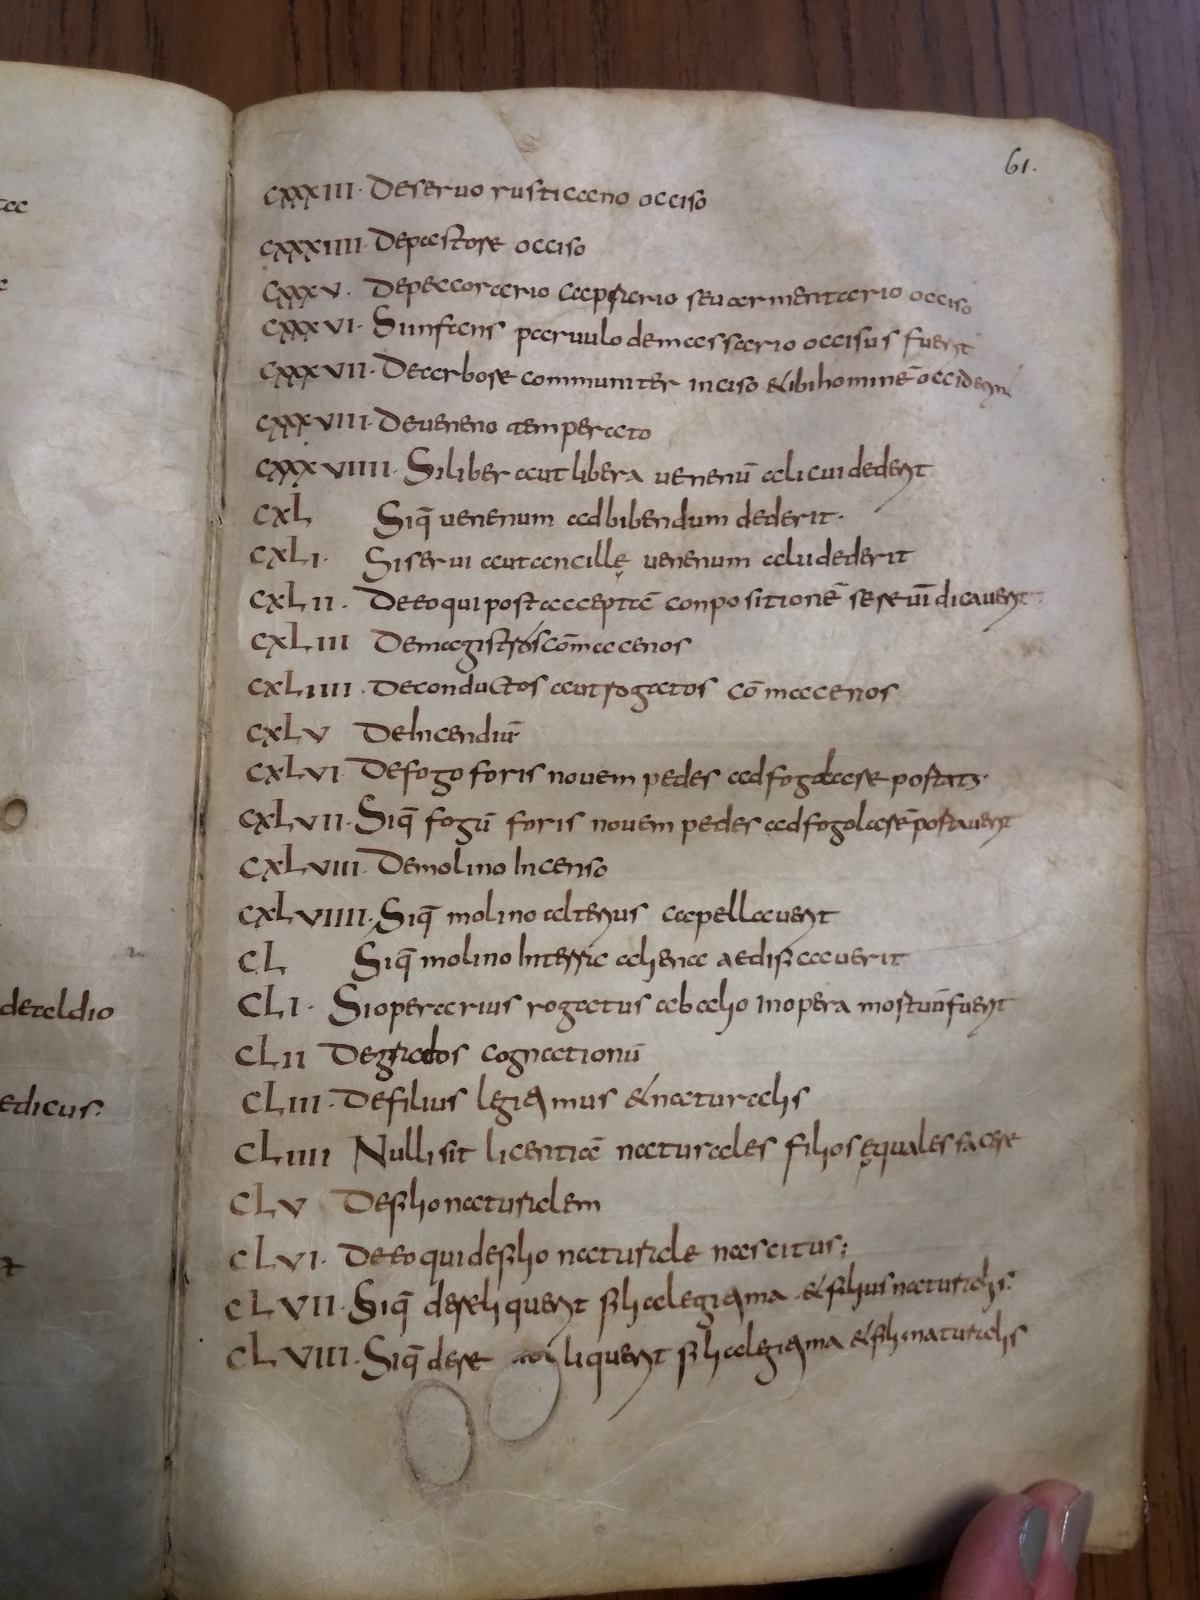 61.
cxxxiii· De seruo rusticano occiso
cxxxiiii· De pastore occiso
cxxxv· De peccorario caprario seu armentario occiso
cxxxvi· Si infans paruulo de massario occisus fuerit
cxxxvii· De arbore communiter inciso & ibi hominē occiderit
cxxxviii· De ueneno temperato
cxxxviiii· Si liber aut libera uenenū alicui dederit
cxL Si q̄ uenenum ad bibendum dederit·
cxLi· Si serui aut ancillę uenenum alii dederit
cxLii· De eo qui post acceptā conpositionē se reuīdicauerit
cxLiii De magistros cōmacenos
cxLiiii· De conductos aut rogatos cōmacenos
cxLv De Incendiū
cxLvi· De fogo foris nouem pedes ad fogolare portatʒ·
cxLvii· Si q̄ fogū foris nouem pedes ad fogolare portauerit
cxLviii· De molino Incenso
cxLviiii· Si q̄ molino alterius capellauerit
cL Si q̄ molino In terra aliena aedificauerit
cLi· Si operarius rogatus ab alio in opera mortuus fuerit
cLii De grados cognationū
cLiii· De filius legitimus & naturalis
cLiiii Nulli sit licentia naturales filios ęquales facere
cLv De filio naturalem
cLvi· De eo qui de filio naturale nascitus;
cLvii· Si q̄ dereliquerit filia legitima & filius naturalis·
cLviii· Si q̄ dere liquerit filia legitima & filii naturalis
deteldio
edicus·